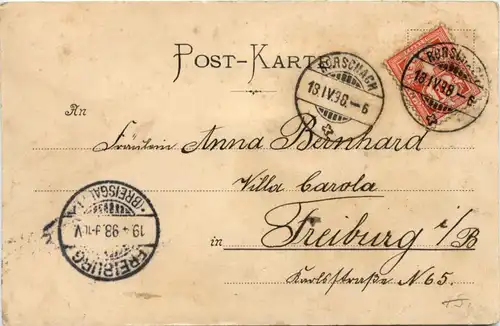 POST-KARTE
RORSCHACH
18.IV.98.-6
RORSCHACH
18.IV.98.-6
An
Fräulein Anna Bernhard
Villa Carola
in Freiburg i/B
Karlsstraße N 65.
FREIBURG
19 4 98
(BREISGAU)